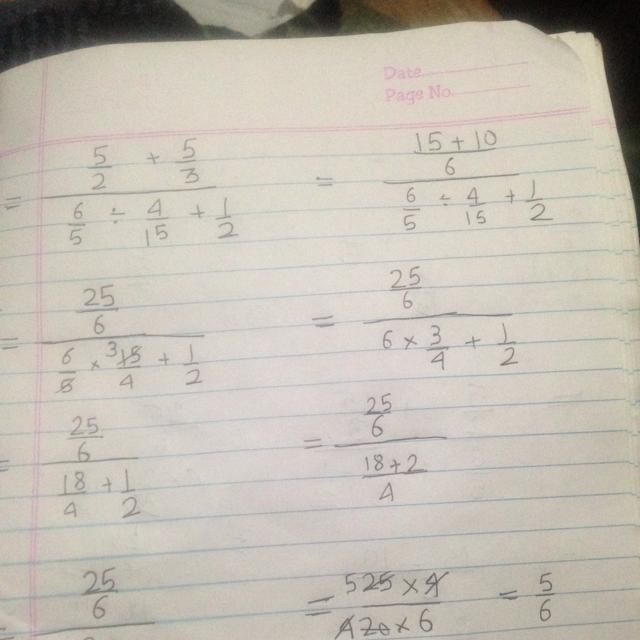 Date
Page No.
= (5/2 + 5/3) / (6/5 ÷ 4/15 + 1/2) = ((15+10)/6) / (6/5 ÷ 4/15 + 1/2)
= (25/6) / (6/5 × 3 15/4 + 1/2) = (25/6) / (6 × 3/4 + 1/2)
= (25/6) / (18/4 + 1/2) = (25/6) / ((18+2)/4)
= 25/6 = (5 25 × 4) / (4 20 × 6) = 5/6